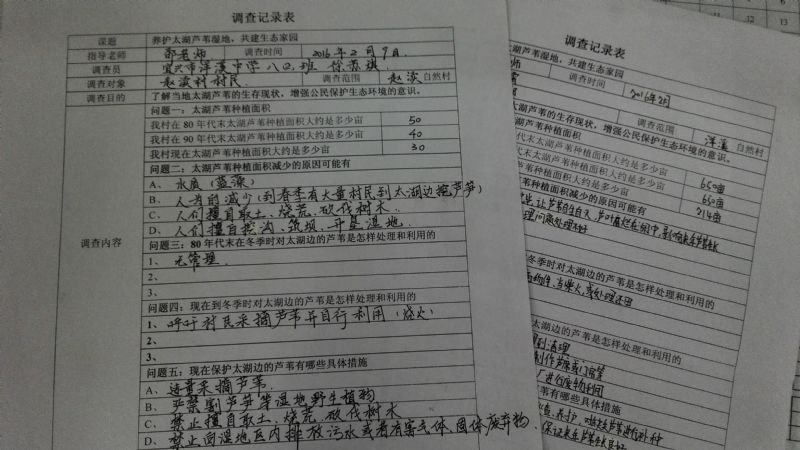 调查记录表
课题 养护太湖芦苇湿地，共建生态家园
指导老师 邵老师 调查时间 2016年2月9日
调查员 宜兴市洋溪中学 八(2)班 徐燕祺
调查对象 赵渎村村民 调查范围 赵渎 自然村
调查目的 了解当地太湖芦苇的生存现状，增强公民保护生态环境的意识。
调查内容
问题一：太湖芦苇种植面积
我村在80年代末太湖芦苇种植面积大约是多少亩 50
我村在90年代末太湖芦苇种植面积大约是多少亩 40
我村现在太湖芦苇种植面积大约是多少亩 30
问题二：太湖芦苇种植面积减少的原因可能有
A、水质（蓝藻）
B、人为的减少（到春季有大量村民到太湖边挖芦笋）
C、人们擅自取土、烧荒、砍伐树木
D、人们擅自挖沟、筑坝、开垦湿地
问题三：80年代末在冬季时对太湖边的芦苇是怎样处理和利用的
1、无管理
2、
3、
问题四：现在到冬季时对太湖边的芦苇是怎样处理和利用的
1、呼吁村民采摘芦苇并自行利用（烧火）
2、
3、
问题五：现在保护太湖边的芦苇有哪些具体措施
A、适量采摘芦苇
B、严禁割芦笋等湿地野生植物
C、禁止擅自取土、烧荒、砍伐树木
D、禁止向湿地区内排放污水或者有害气体、固体废弃物、
调查记录表
湖芦苇湿地，共建生态家园
师 调查时间 2016年2月
调查范围 洋溪 自然村
太湖芦苇的生存现状，增强公民保护生态环境的意识。
太湖芦苇种植面积
代末太湖芦苇种植面积大约是多少亩 650亩
代末太湖芦苇种植面积大约是多少亩 650亩
太湖芦苇种植面积大约是多少亩 214亩
芦苇种植面积减少的原因可能有
冬季时对太湖边的芦苇是怎样处理和利用的
太湖边的芦苇是怎样处理和利用的
进行废物利用
芦苇有哪些具体措施